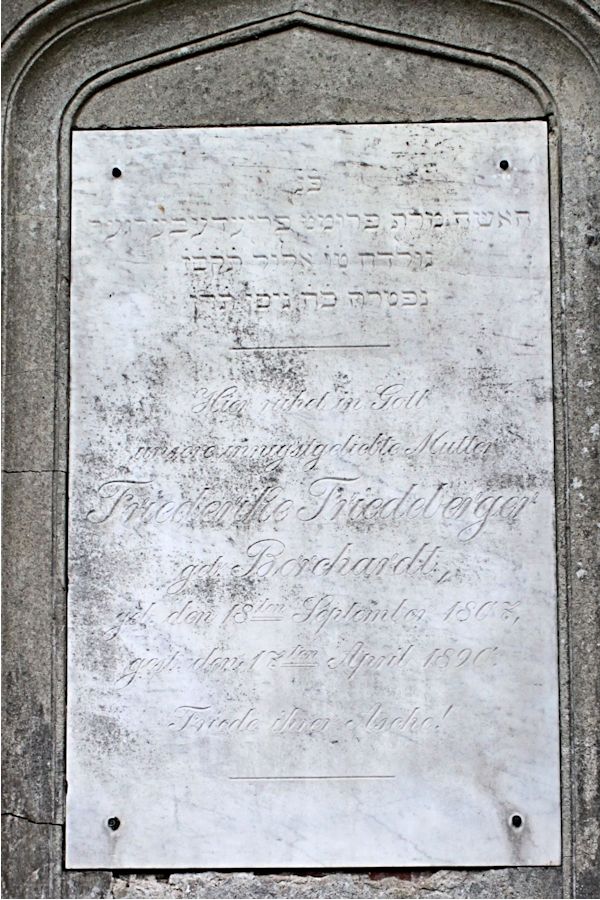 פנ
האשה מרת פרומט פריעדעבערגער
נולדה טו אלול תקסז
נפטרה ניסן תרן
Hier ruhet in Gott
unsere innigstgeliebte Mutter
Friederike Friedeberger
geb. Borchardt,
geb. den 18ten September 1807,
gest. den 17ten April 1890.
Friede ihrer Asche!